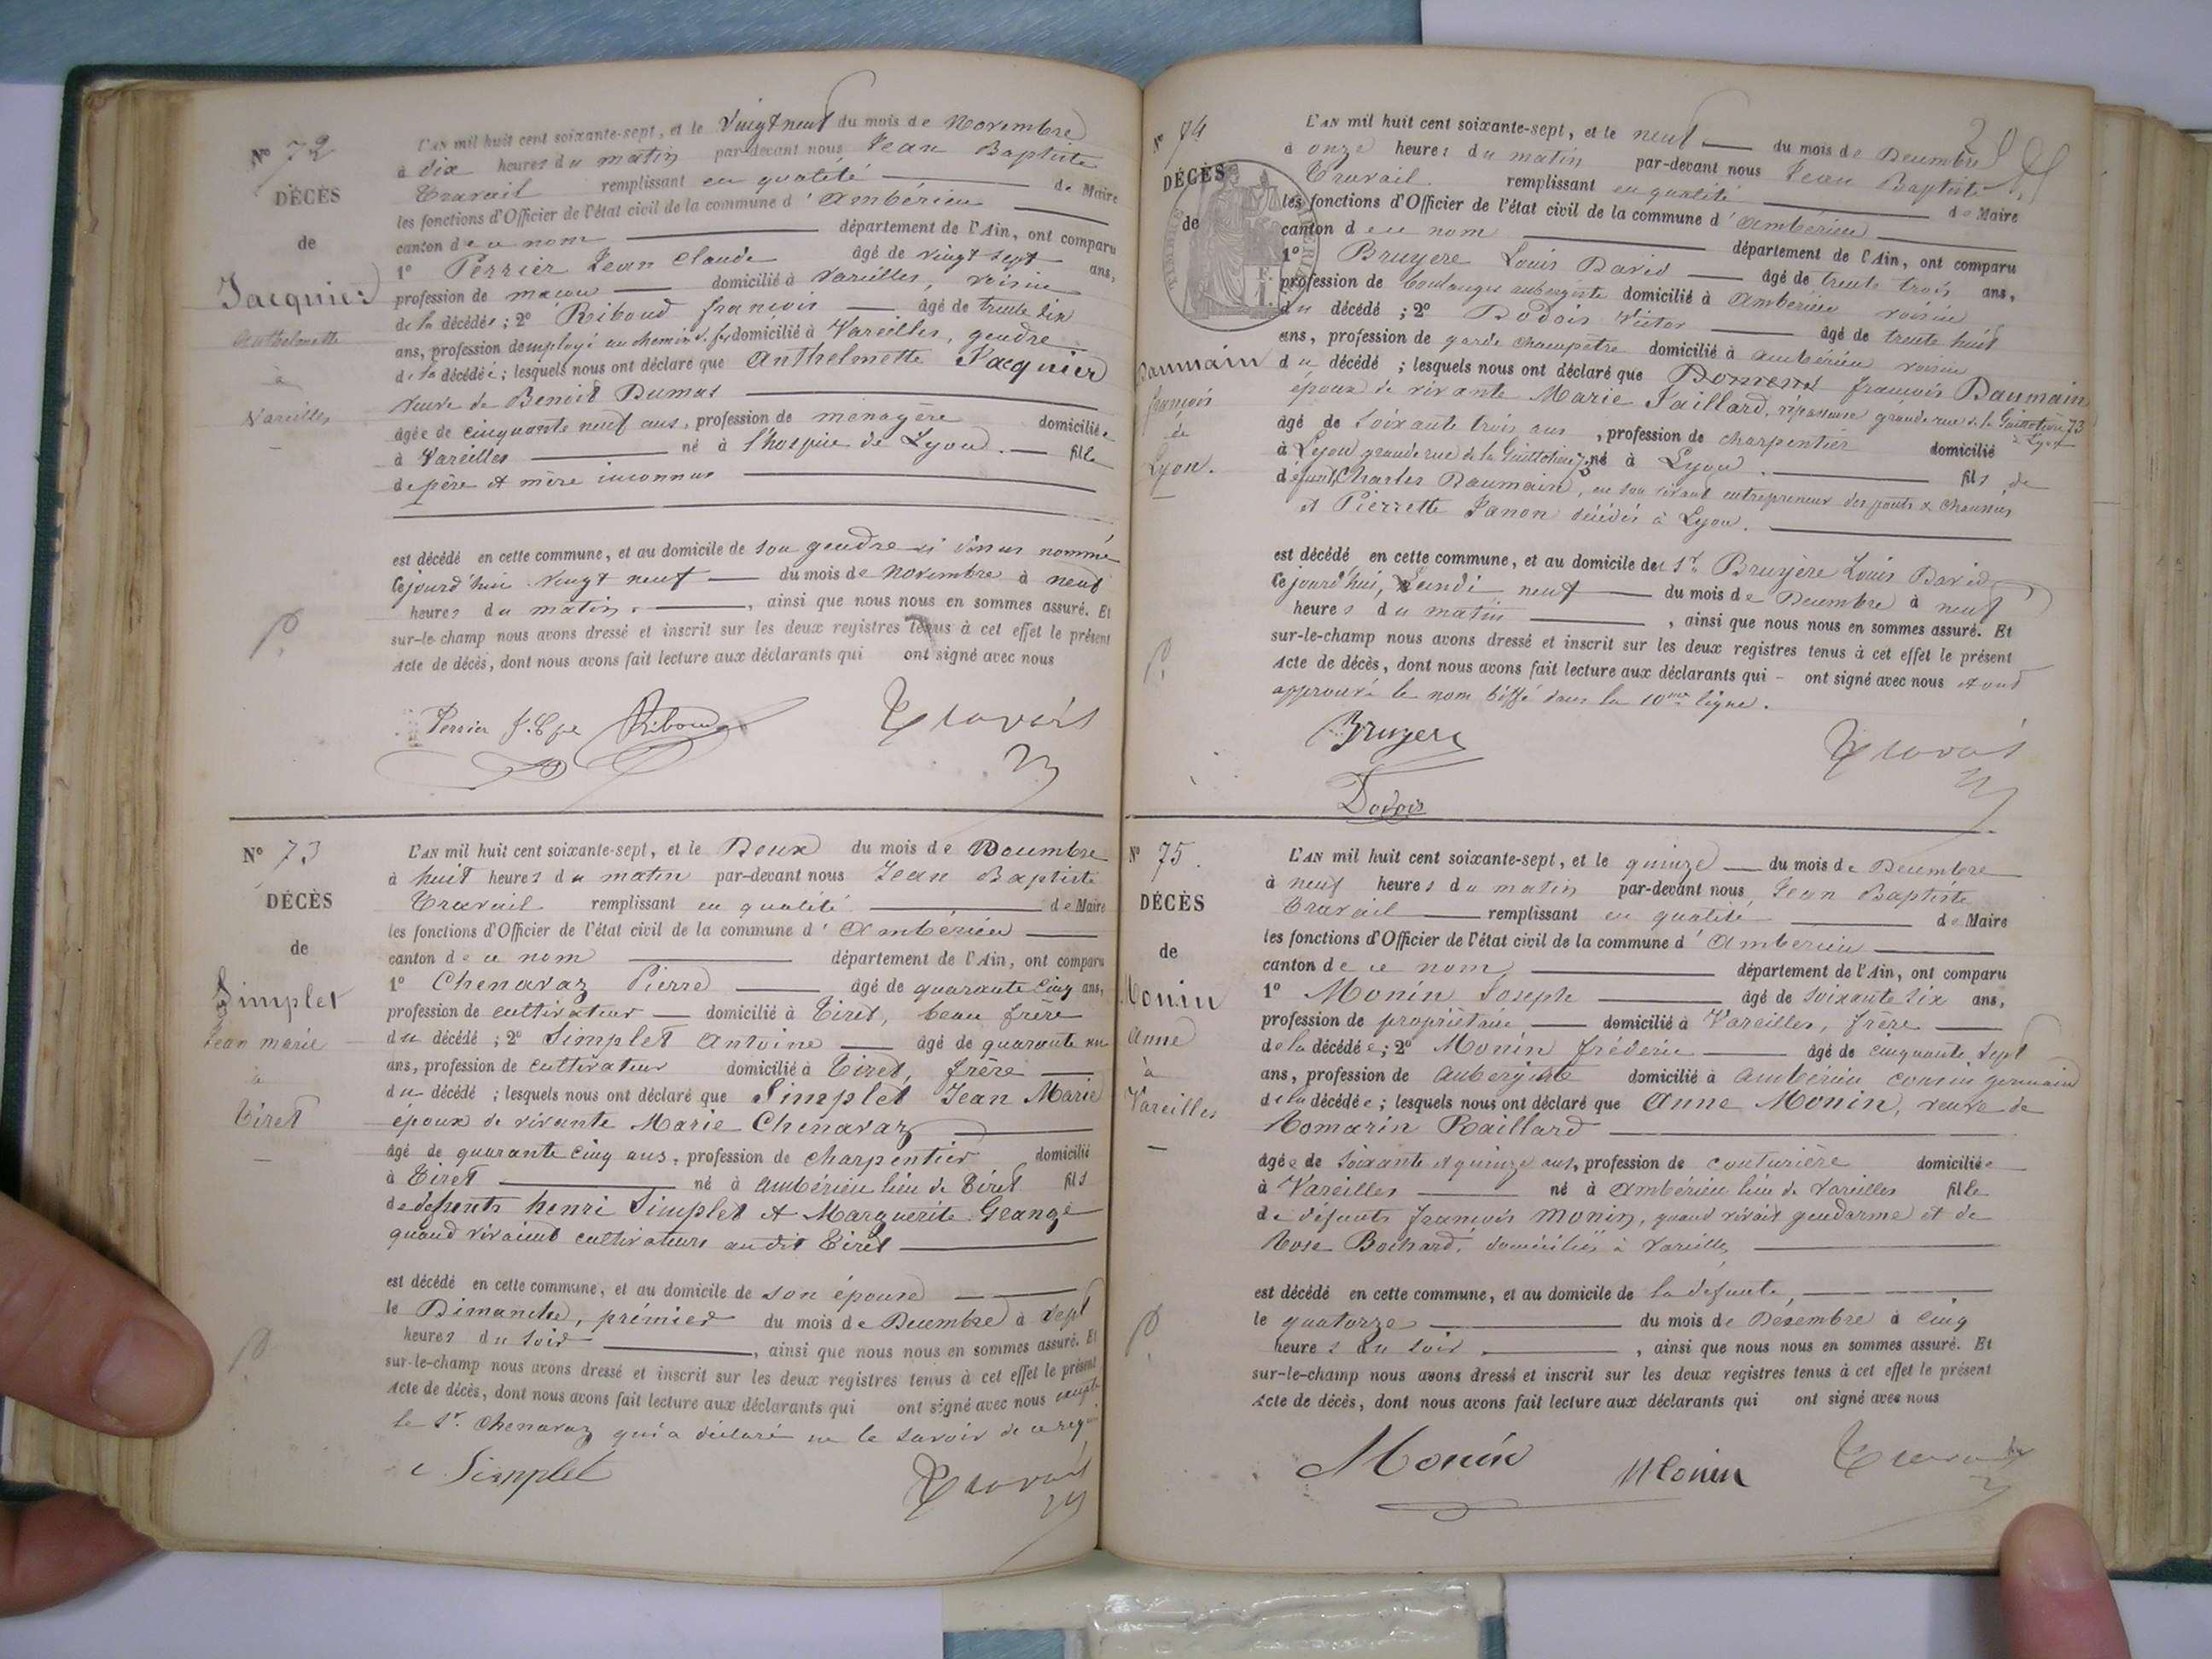 N° 72
DÉCÈS
de
Jacquier
Anthelmette
à
Vareilles
L'AN mil huit cent soixante-sept, et le vingt neuf du mois de Novembre
à dix heures du matin par-devant nous Jean Baptiste
Travail remplissant en qualité de Maire
les fonctions d'Officier de l'état civil de la commune d'Ambérieu
canton de ce nom département de l'Ain, ont comparu
1° Perrier Jean Claude âgé de vingt sept ans,
profession de maçon domicilié à Vareilles, voisin
de la décédée ; 2° Riboud françois âgé de trente six
ans, profession d'employé au chemin de fer domicilié à Vareilles, gendre
de la décédée ; lesquels nous ont déclaré que Anthelmette Jacquier
veuve de Benoit Dumas
âgée de cinquante neuf ans, profession de ménagère domiciliée
à Vareilles né à l'hospice de Lyon. fille
de père et mère inconnus
est décédé en cette commune, et au domicile de son gendre ci dessus nommé
Cejourd'hui vingt neuf du mois de Novembre à neuf
heures du matin, ainsi que nous nous en sommes assuré. Et
sur-le-champ nous avons dressé et inscrit sur les deux registres tenus à cet effet le présent
Acte de décès, dont nous avons fait lecture aux déclarants qui ont signé avec nous
Perrier Riboud Travail
N° 73
DÉCÈS
de
Simplet
Jean marie
à
Tiret
L'AN mil huit cent soixante-sept, et le Deux du mois de Décembre
à huit heures du matin par-devant nous Jean Baptiste
Travail remplissant en qualité de Maire
les fonctions d'Officier de l'état civil de la commune d'Ambérieu
canton de ce nom département de l'Ain, ont comparu
1° Chenavaz Pierre âgé de quarante cinq ans,
profession de cultivateur domicilié à Tiret, beau frère
du décédé ; 2° Simplet Antoine âgé de quarante un
ans, profession de cultivateur domicilié à Tiret, frère
du décédé ; lesquels nous ont déclaré que Simplet Jean Marie
époux de vivante Marie Chenavaz
âgé de quarante cinq ans, profession de charpentier domicilié
à Tiret né à Ambérieu lieu de Tiret fils
de défunts henri Simplet et Marguerite Grange
quand vivaient cultivateurs audit Tiret
est décédé en cette commune, et au domicile de son épouse
le Dimanche, premier du mois de Décembre à sept
heures du soir, ainsi que nous nous en sommes assuré. Et
sur-le-champ nous avons dressé et inscrit sur les deux registres tenus à cet effet le présent
Acte de décès, dont nous avons fait lecture aux déclarants qui ont signé avec nous excepté
le Sr. Chenavaz qui a déclaré ne le savoir de ce requis
Simplet Travail
N° 74
DÉCÈS
de
Daumain
françois
de
Lyon.
L'AN mil huit cent soixante-sept, et le neuf du mois de Décembre
à onze heures du matin par-devant nous Jean Baptiste
Travail remplissant en qualité de Maire
les fonctions d'Officier de l'état civil de la commune d'Ambérieu
canton de ce nom département de l'Ain, ont comparu
1° Bruyere Louis David âgé de trente trois ans,
profession de boulanger aubergiste domicilié à Ambérieu voisin
du décédé ; 2° Dodois Victor âgé de trente huit
ans, profession de garde champêtre domicilié à Ambérieu voisin
du décédé ; lesquels nous ont déclaré que françois Daumain
époux de vivante Marie Jaillard, repasseuse grande rue de la Guillotière 73 à Lyon
âgé de soixante trois ans, profession de charpentier domicilié
à Lyon grande rue de la Guillotière 73 né à Lyon. fils de
défunt Charles Daumain, en son vivant entrepreneur des ponts & chaussées
et Pierrette Janon décédés à Lyon.
est décédé en cette commune, et au domicile de Sr. Bruyère Louis David
Cejourd'hui, Lundi neuf du mois de Décembre à neuf
heures du matin, ainsi que nous nous en sommes assuré. Et
sur-le-champ nous avons dressé et inscrit sur les deux registres tenus à cet effet le présent
Acte de décès, dont nous avons fait lecture aux déclarants qui ont signé avec nous et ont
approuvé le nom biffé dans la 10me ligne.
Bruyere Travail
Dodois
N° 75.
DÉCÈS
de
Monin
Anne
à
Vareilles
L'AN mil huit cent soixante-sept, et le quinze du mois de Décembre
à neuf heures du matin par-devant nous, Jean Baptiste
Travail remplissant en qualité de Maire
les fonctions d'Officier de l'état civil de la commune d'Ambérieu
canton de ce nom département de l'Ain, ont comparu
1° Monin Joseph âgé de soixante six ans,
profession de propriétaire domicilié à Vareilles, frère
de la décédée ; 2° Monin fréderic âgé de cinquante sept
ans, profession de Aubergiste domicilié à Ambérieu cousin germain
de la décédée ; lesquels nous ont déclaré que Anne Monin, veuve de
Romarin Raillard
âgée de soixante et quinze ans, profession de couturière domiciliée
à Vareilles né à Ambérieu lieu de Vareilles fille
de défunts françois Monin, quand vivait gendarme et de
Rose Bochard, domiciliés à Vareilles
est décédé en cette commune, et au domicile de la défunte,
le quatorze du mois de Désembre à cinq
heures du soir, ainsi que nous nous en sommes assuré. Et
sur-le-champ nous avons dressé et inscrit sur les deux registres tenus à cet effet le présent
Acte de décès, dont nous avons fait lecture aux déclarants qui ont signé avec nous
Monin Monin Travail